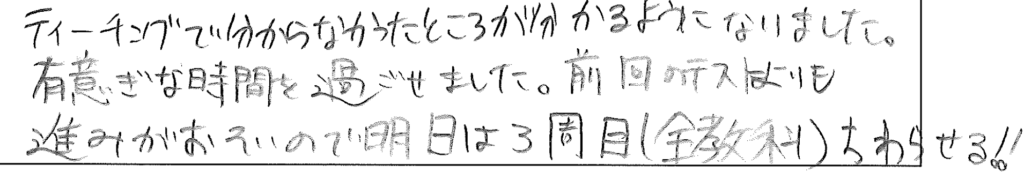 ティーチングで分からなかったところが分かるようになりました。
有意ぎな時間を過ごせました。前回のテストよりも
進みがおそいので明日は3周目(全教科)おわらせる!!